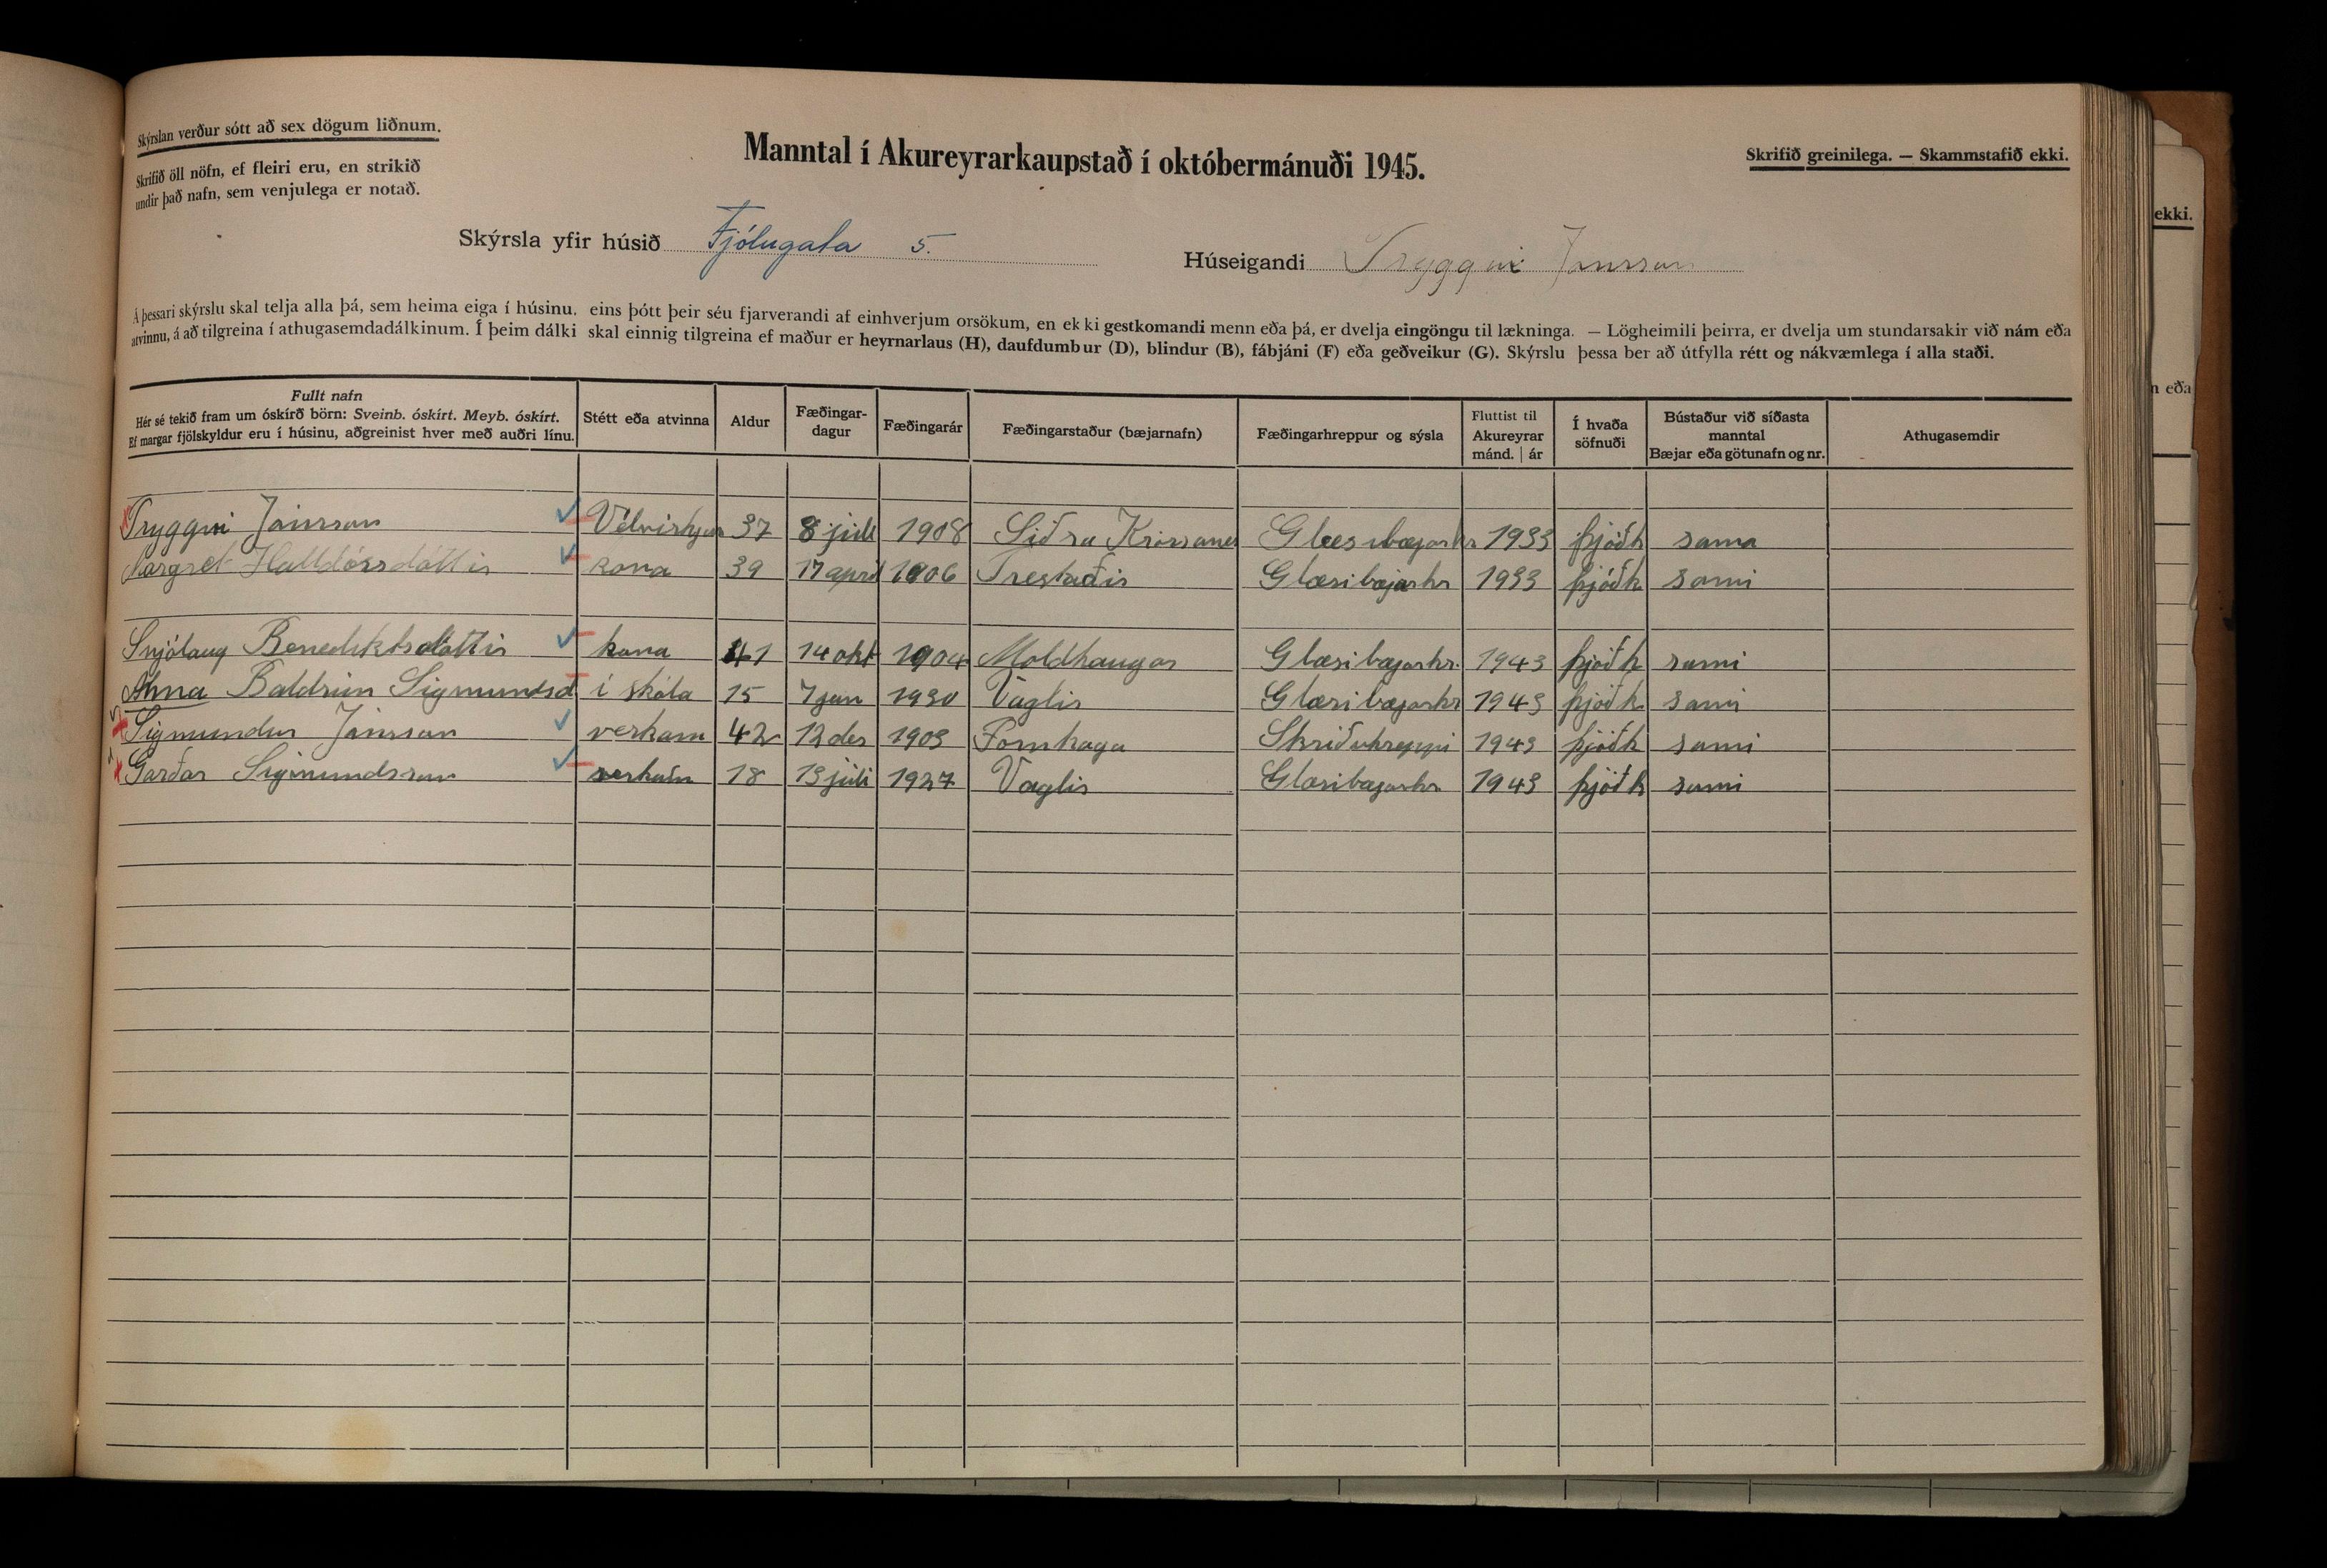 Skýrslan verður sótt að sex dögum liðnum.
Skrifið öll nöfn, ef fleiri eru, en strikið
undir það nafn, sem venjulega er notað.
Manntal í Akureyrarkaupstað í októbermánuði 1945.
Skrifið greinilega. — Skammstafið ekki.
ekki.
Skýrsla yfir húsið Fjólugata 5.
Húseigandi Tryggvi Jónsson
Á þessari skýrslu skal telja alla þá, sem heima eiga í húsinu, eins þótt þeir séu fjarverandi af einhverjum orsökum, en ekki gestkomandi menn eða þá, er dvelja eingöngu til lækninga. — Lögheimili þeirra, er dvelja um stundarsakir við nám eða
atvinnu, á að tilgreina í athugasemdadálkinum. Í þeim dálki skal einnig tilgreina ef maður er heyrnarlaus (H), daufdumbur (D), blindur (B), fábjáni (F) eða geðveikur (G). Skýrslu þessa ber að útfylla rétt og nákvæmlega í alla staði.
n eða
Fullt nafn
Hér sé tekið fram um óskírð börn: Sveinb. óskírt. Meyb. óskírt.
Ef margar fjölskyldur eru í húsinu, aðgreinist hver með auðri línu.
Stétt eða atvinna
Aldur
Fæðingar-
dagur
Fæðingarár
Fæðingarstaður (bæjarnafn)
Fæðingarhreppur og sýsla
Fluttist til
Akureyrar
mánd. | ár
Í hvaða
söfnuði
Bústaður við síðasta
manntal
Bæjar eða götunafn og nr.
Athugasemdir
Tryggvi Jónsson Vélvirkjun 37 8 júlí 1908 Siðra Krossanes Glæsibæjarhr 1933 þjóðk sama
Margrét Halldórsdóttir kona 39 17 apríl 1906 Trestaðir Glæsibæjarhr 1933 þjóðk sami
Snjólaug Benediktsdóttir kona 41 14 okt 1904 Moldhaugar Glæsibæjarhr. 1943 þjóðk sami
Anna Baldrún Sigmundsd í skóla 15 7 jan 1930 Vaglir Glæsibæjarhr 1943 þjóðk sami
Sigmundur Jónsson verkam 42 12 des 1903 Fornhaga Skriðuhreppi 1943 þjóðk sami
Garðar Sigmundsson verkam 18 13 júli 1927 Vaglir Glæsibæjarhr 1943 þjóðk sami